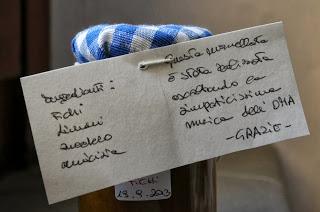 Ingredienti:
Fichi
Limoni
zucchero
amicizia
Questa marmellata
è stata realizzata
ascoltando la
simpaticissima
musica dell' OHA
- GRAZIE -
FICHI
13.9.2013